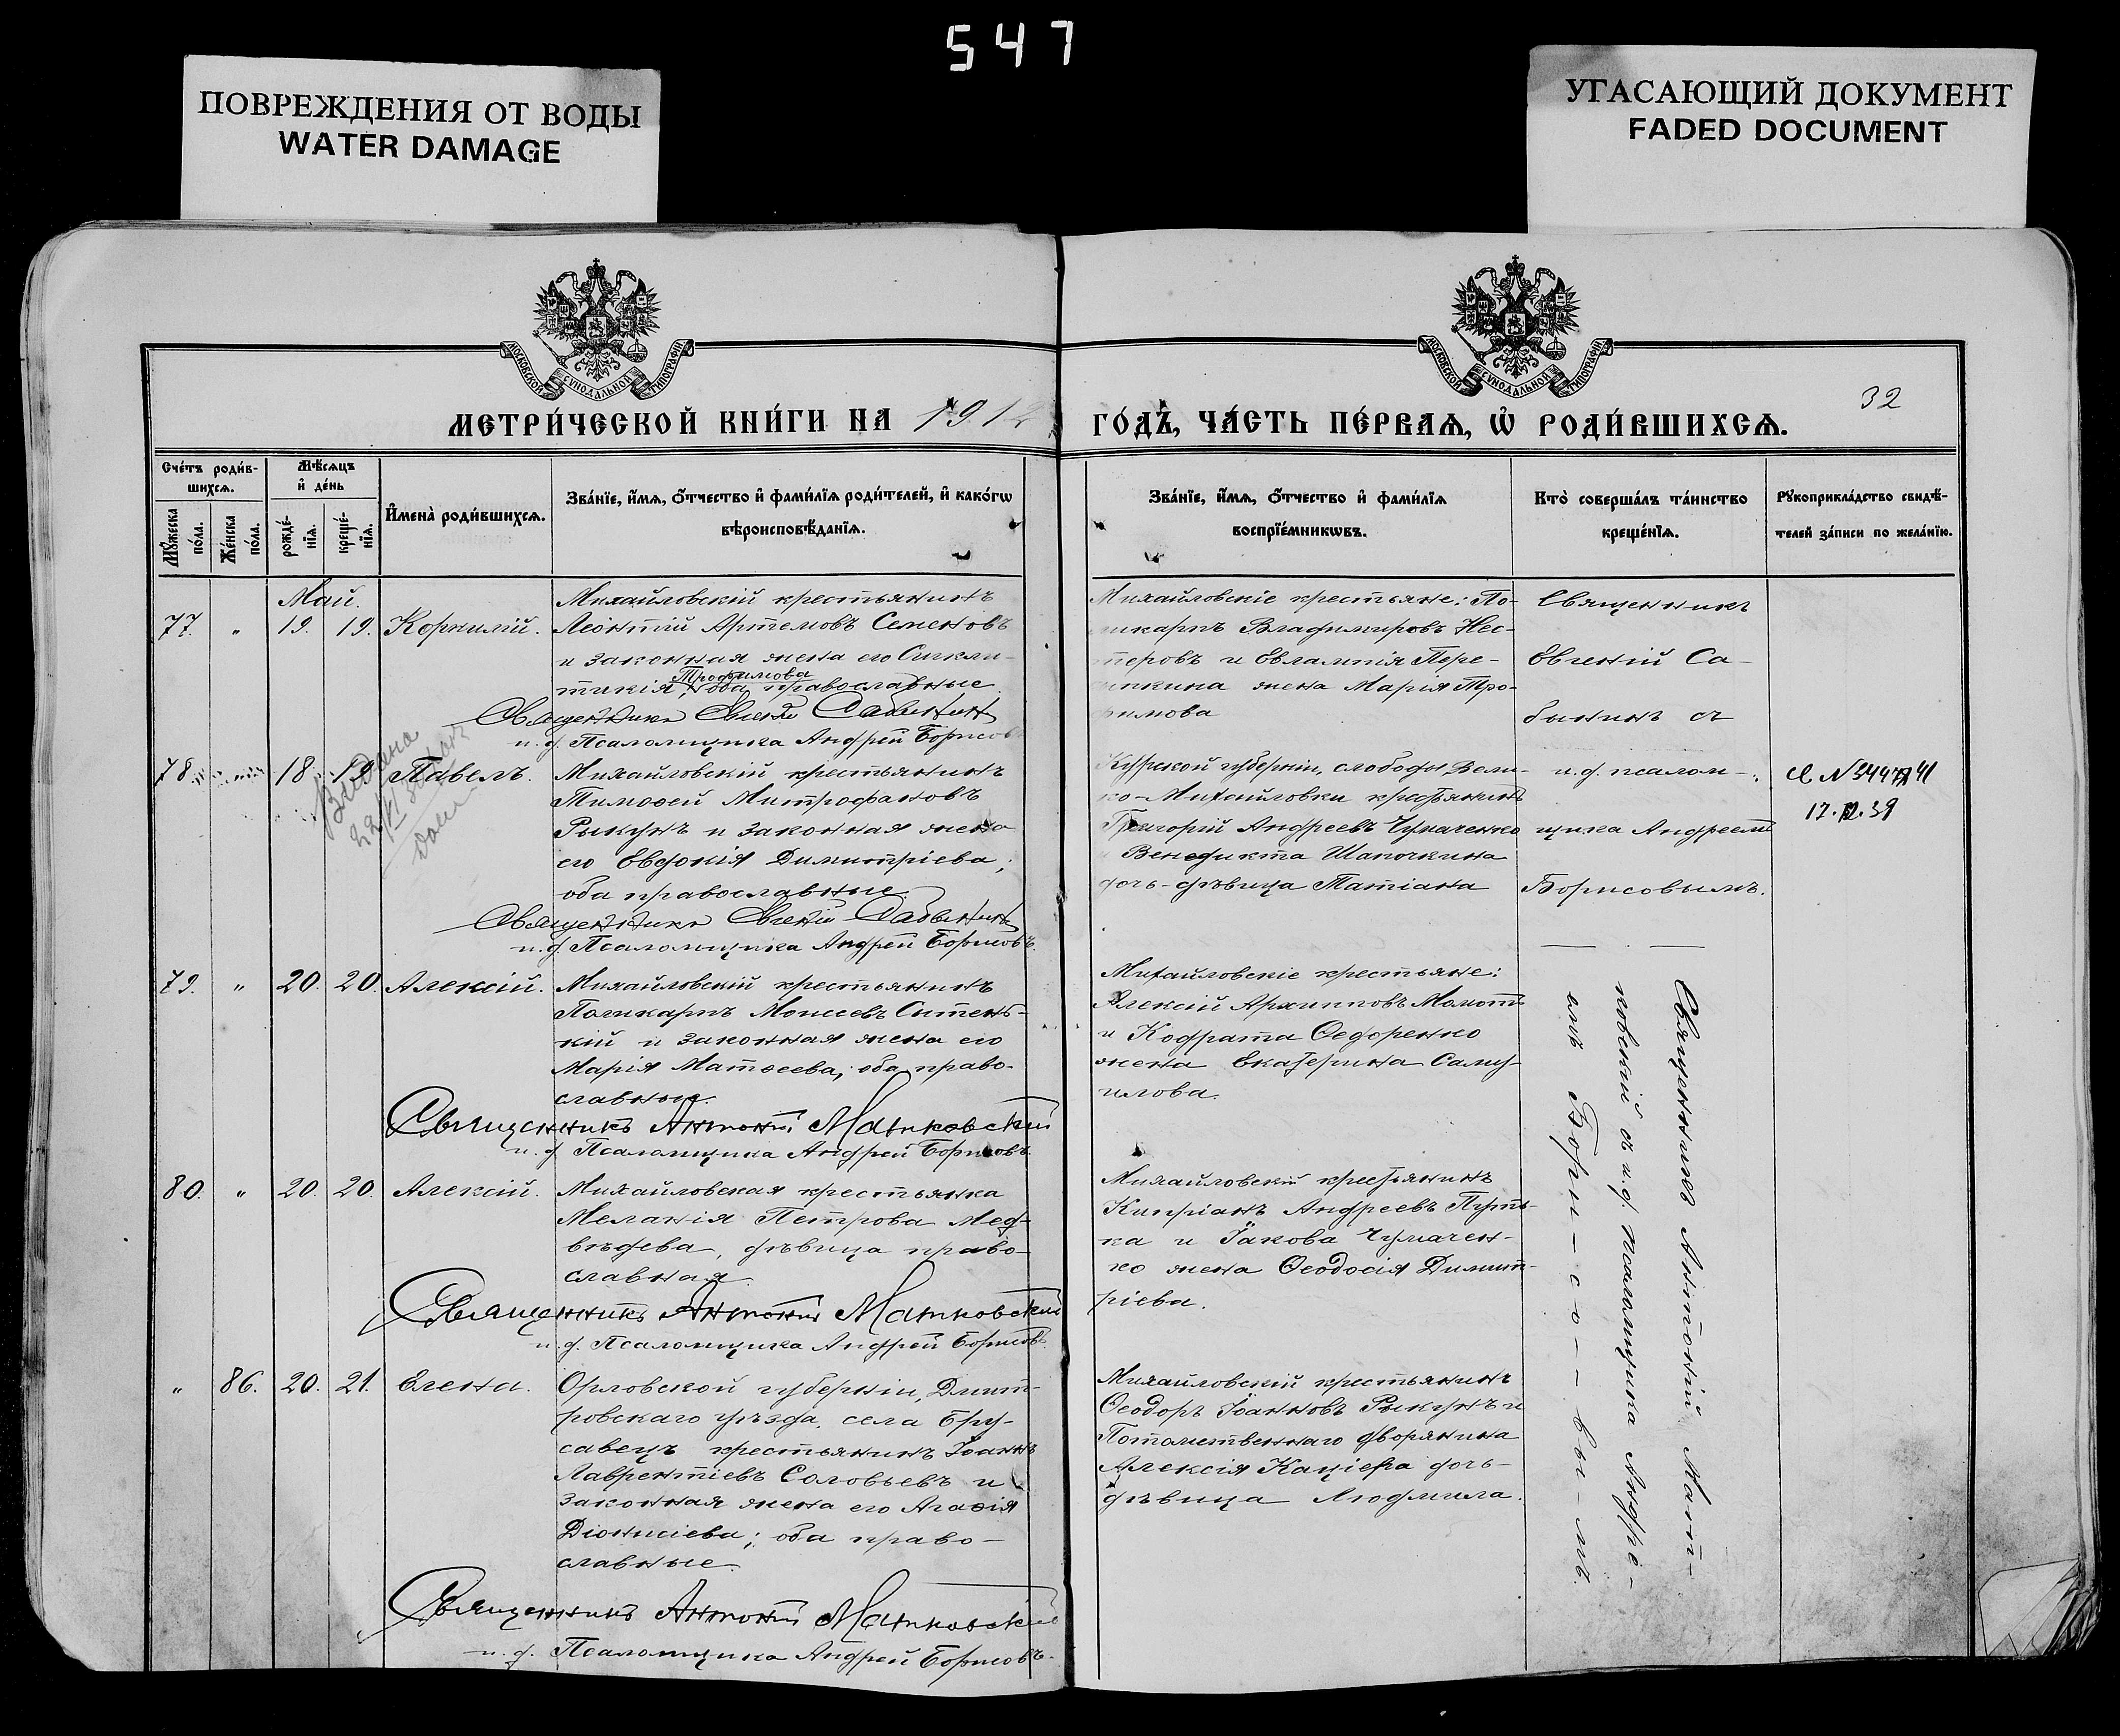 547
ПОВРЕЖДЕНИЯ ОТ ВОДЫ
WATER DAMAGE
УГАСАЮЩИЙ ДОКУМЕНТ
FADED DOCUMENT
МОСКОВСКОЙ СѴНОДАЛЬНОЙ ТИПОГРАФІИ
МОСКОВСКОЙ СѴНОДАЛЬНОЙ ТИПОГРАФІИ
32
МЕТРИ́ЧЕСКОЙ КНИ́ГИ НА 1912
ГО́ДЪ, ЧА́СТЬ ПЕ́РВАѦ, Ѡ҆ РОДИ́ВШИХСѦ.
Сче́тъ роди́в-
шихсѧ.
Мѣ́сѧцъ
и҆ де́нь
Мꙋ́жеска по́ла.
Же́нска по́ла.
рожде́-
нїѧ.
креще́-
нїѧ.
И҆мена̀ роди́вшихсѧ.
Зва́нїе, и҆́мѧ, ѻ҆́тчество и҆ фами́лїѧ роди́телей, и҆ како́гѡ
вѣроисповѣ́данїѧ.
Зва́нїе, и҆́мѧ, ѻ҆́тчество и҆ фами́лїѧ
воспрїе́мникѡвъ.
Кто̀ соверша́лъ та́инство
креще́нїѧ.
Рꙋкоприкла́дство свидѣ́-
телей за́писи по жела́нїю.
Май.
77. " 19. 19. Корнилій.
Михайловскій крестьянинъ
Леонтій Артемовъ Семеновъ
и законная жена его Синкли-
тикія Трофимова, оба православные
Священникъ Евгеній Сабынинъ
и. д. Псаломщика Андрей Борисовъ
Михайловскіе крестьяне: По-
ликарпъ Владимировъ Нес-
теровъ и Евлампія
жена Марія Тро-
фимова
Священникъ
Евгеній Са-
бынинъ съ
и. д. псалом-
щика Андреемъ
Борисовымъ.
78 18 19 Павелъ.
Выдана
Михайловскій крестьянинъ
Тимоѳей Митрофановъ
Рыкунъ и законная жена
его Евдокія Димитріева;
оба православные
Священникъ Евгеній Сабынинъ
и. д. Псаломщика Андрей Борисовъ.
Курской губерніи, слободы Вели-
ко-Михайловки крестьянинъ
Григорій Андреевъ Чумаченко
и Венедикта Шапочкина
дочь-дѣвица Татіана
17.12.39
79. " 20. 20. Алексій.
Михайловскій крестьянинъ
Поликарпъ Моисеевъ Ситень-
кій и законная жена его
Марія Матѳеева; оба право-
славные.
Священникъ Антоній Матковскій
и. д. Псаломщика Андрей Борисовъ
Михайловскіе крестьяне:
Алексій Архиповъ Момотъ
и Кодрата Ѳедоренко
жена Екатерина Саму-
илова.
Священникъ Антоній Мат-
ковскій съ и. д. псаломщика Андре-
емъ Бори-со--вы-мъ.
80. " 20. 20. Алексій.
Михайловская крестьянка
Меланія Петрова Мед-
вѣдева, дѣвица право-
славная.
Священникъ Антоній Матковскій
и. д. Псаломщика Андрей Борисовъ.
Михайловскій крестьянинъ
Кипріанъ Андреевъ Путь-
ка и Іакова Чумачен-
ко жена Ѳеодосія Димит-
ріева.
" 86. 20. 21. Елена.
Орловской губерніи, Дмит-
ровскаго уѣзда, села Бру-
савецъ крестьянинъ Іоаннъ
Лаврентіевъ Соловьевъ и
законная жена его Агаѳія
Діонисіева; оба право-
славные.
Священникъ Антоній Матковскій
и. д. Псаломщика Андрей Борисовъ.
Михайловскій крестьянинъ
Ѳеодоръ Іоанновъ Рыкунъ и
Потомственнаго дворянина
Алексія дочь-
дѣвица Людмила.